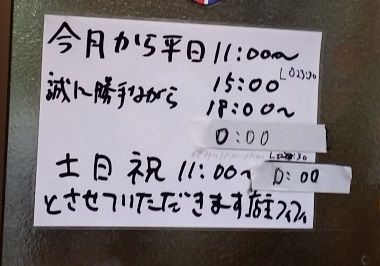 今月から平日 11:00〜
15:00 LO23:30
誠に勝手ながら 18:00〜
0:00
土日祝 11:00〜 0:00
とさせていただきます店主フィフィ